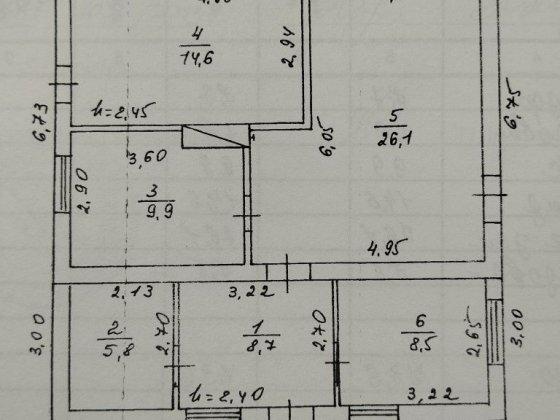 4
14,6
2,94
h=2,45
6,73
6,75
5
26,1
6,05
3,60
2,90
3
9,9
4,95
2,13
3,22
3,00
2
5,8
2,70
1
8,7
2,70
6
8,5
2,65
3,00
h=2,40
3,22